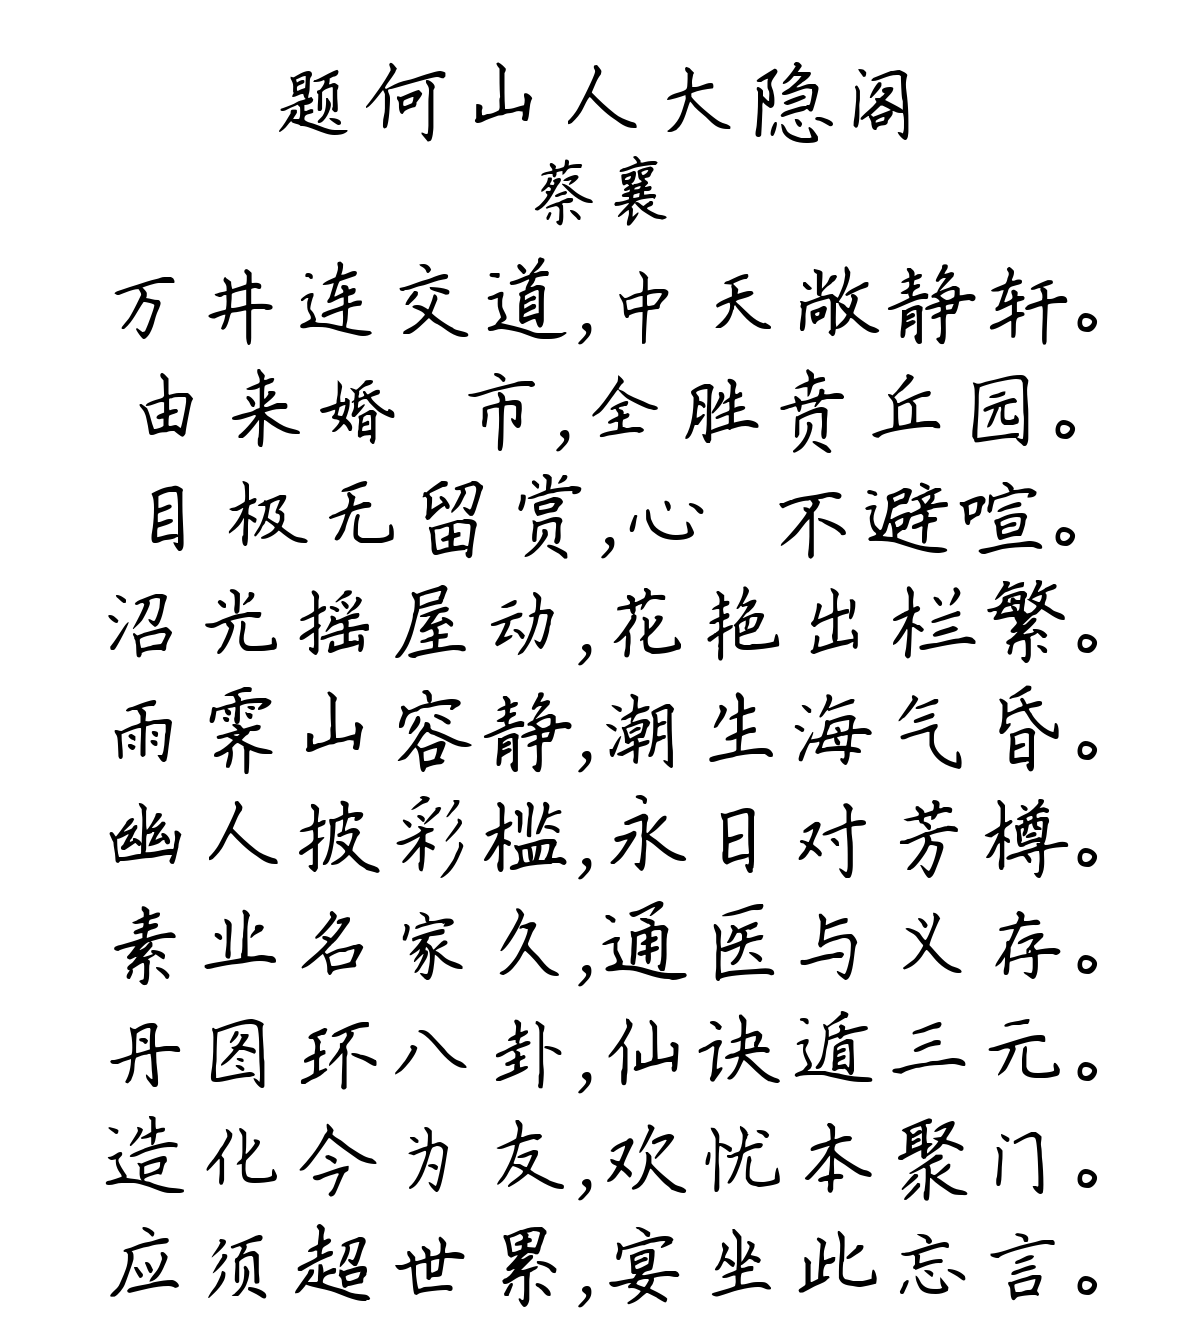 题何山人大隐阁
蔡襄
万井连交道,中天敞静轩。
由来婚 市,全胜贲丘园。
目极无留赏,心 不避喧。
沼光摇屋动,花艳出栏繁。
雨霁山容静,潮生海气昏。
幽人披彩槛,永日对芳樽。
素业名家久,通医与义存。
丹图环八卦,仙诀遁三元。
造化今为友,欢忧本聚门。
应须超世累,宴坐此忘言。